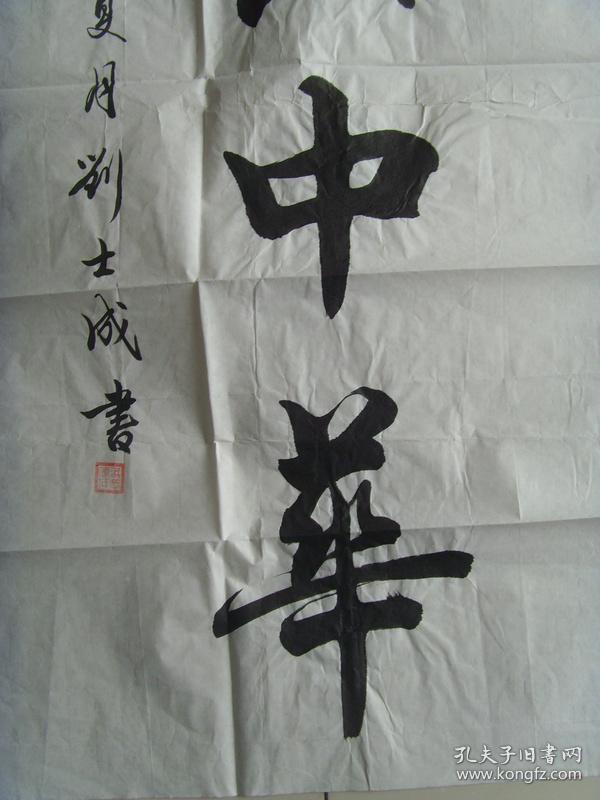 中華
夏月劉士成書
孔夫子旧書网
www.kongfz.com